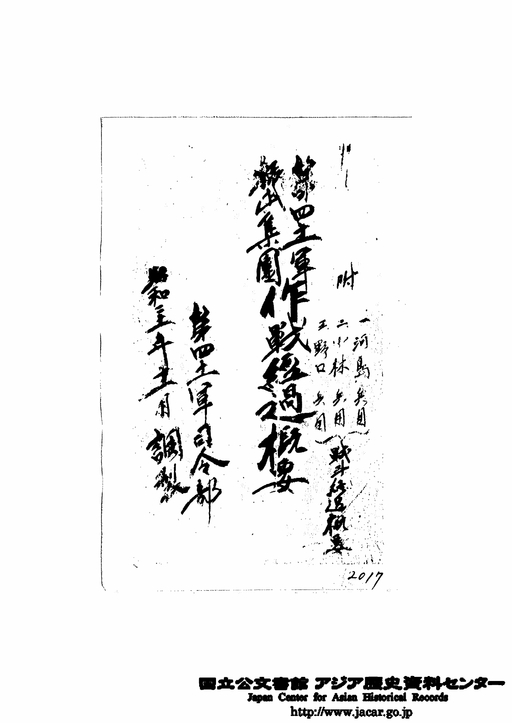 附
一河島兵団
二小林兵団
三野口兵団
戦斗経過概要
第四十一軍
振武集団
作戦経過概要
第四十一軍司令部
昭和二十年十一月調製
2017
国立公文書館 アジア歴史資料センター
Japan Center for Asian Historical Records
http://www.jacar.go.jp